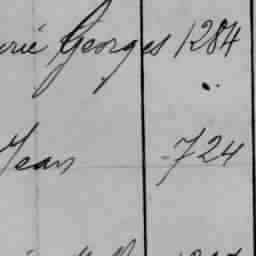 Georges 1284
Jean 724